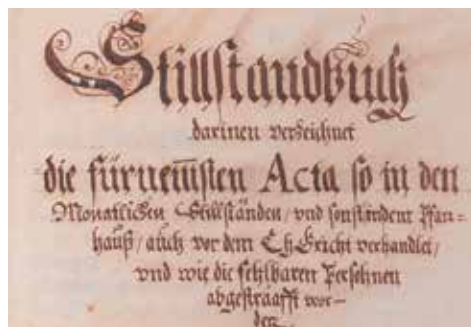 Stillstandbuch
darinen verzeichnet
die fürnemsten Acta so in den
Monatlichen Stillständen / und sonst in dem Pfar=
hauß / auch vor dem Ehgricht verhandlet /
und wie die fehlbaren Persohnen
abgestraafft wor=
den